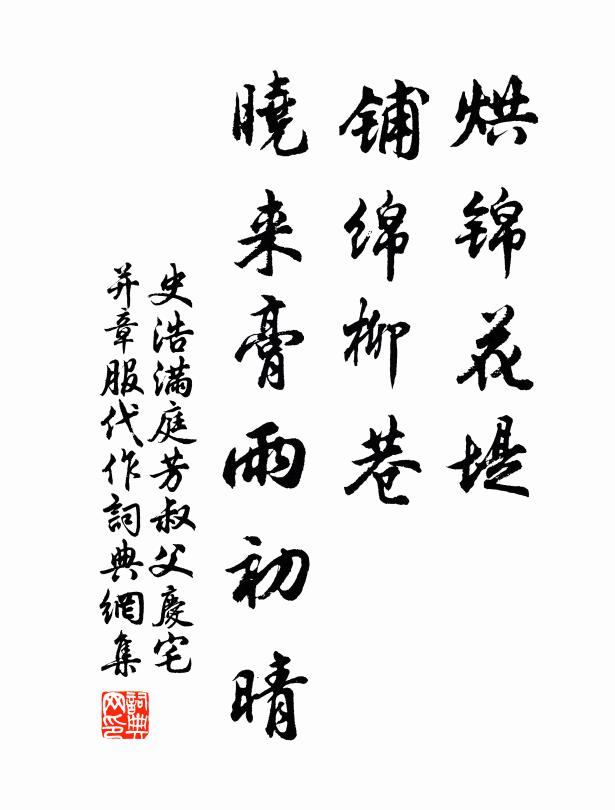 烘锦花堤
铺绵柳巷
曉来膏雨初晴
史浩满庭芳叔父慶宅
并章服代作詞典網集
詞典
网印